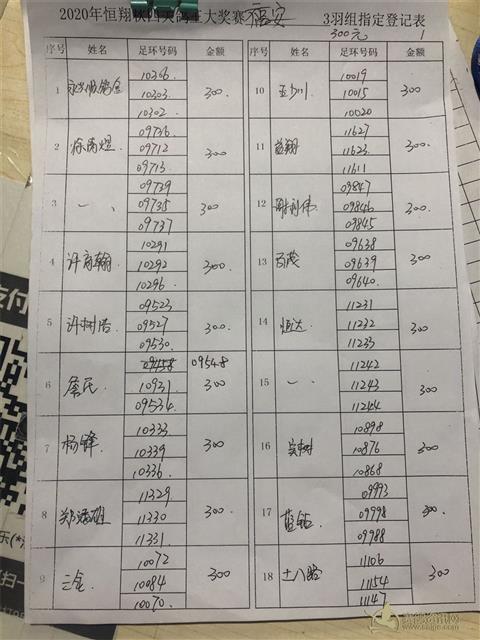 2020年恒翔秋四关鸽王大奖赛 福安 3羽组指定登记表
300元 1
序号 姓名 足环号码 金额 序号 姓名 足环号码 金额
1 10346. 10303 10302 300. 10 10019 10015 10020 300
2 09736 09712 09713. 300 11 益翔 11627 11623. 11611 300.
3 一、 09739 09735 09737 300 12 谢利伟 09847 09846 09845 300
4 许 翰 10291 10292 10296. 300. 13 百茂 09638 09639 09640. 300
5 许树浩 09523 09527 09530. 300. 14 恒达 11231 11232 11233 300
6 詹氏 09548 10931 09534. 300 15 一、 11242 11243 11244 300
7 杨锋 10333 10339 10336. 300 16 10898 10876 10868 300
8 郑 雄 11329 11330 11331. 300. 17 蓝钻 09993 09998 09988 300.
9 三金 10072 10084 10070. 300 18 十八路 11106 11154 11147 300
支付